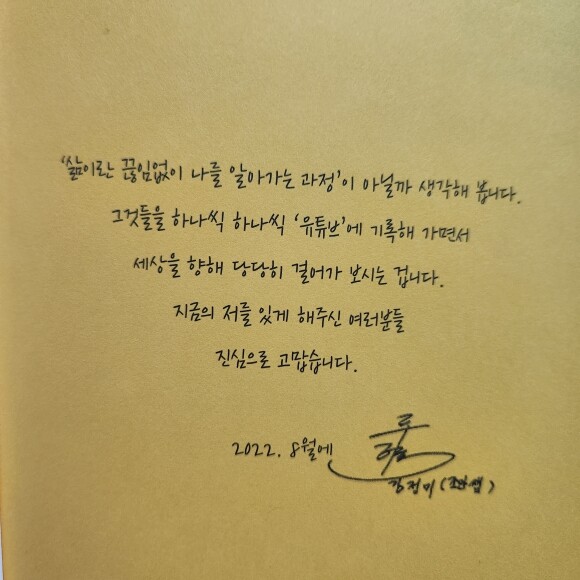 '삶이란 끊임없이 나를 알아가는 과정'이 아닐까 생각해 봅니다.
그것들을 하나씩 하나씩 '유튜브'에 기록해 가면서
세상을 향해 당당히 걸어가 보시는 겁니다.
지금의 저를 있게 해주신 여러분들
진심으로 고맙습니다.
2022. 8월에
김정미